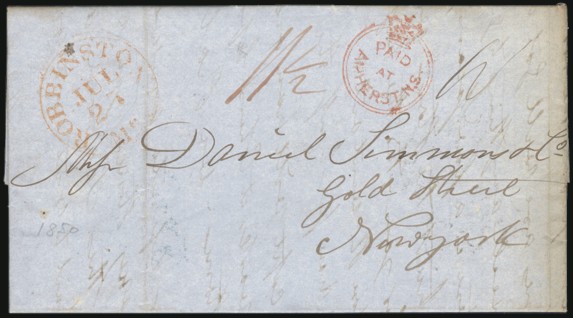 ROBBINSTON
JUL
24
Me
11½
PAID
AT
AMHERST.N.S.
Messrs Daniel Simmons & Co
Gold Street
New york
1850